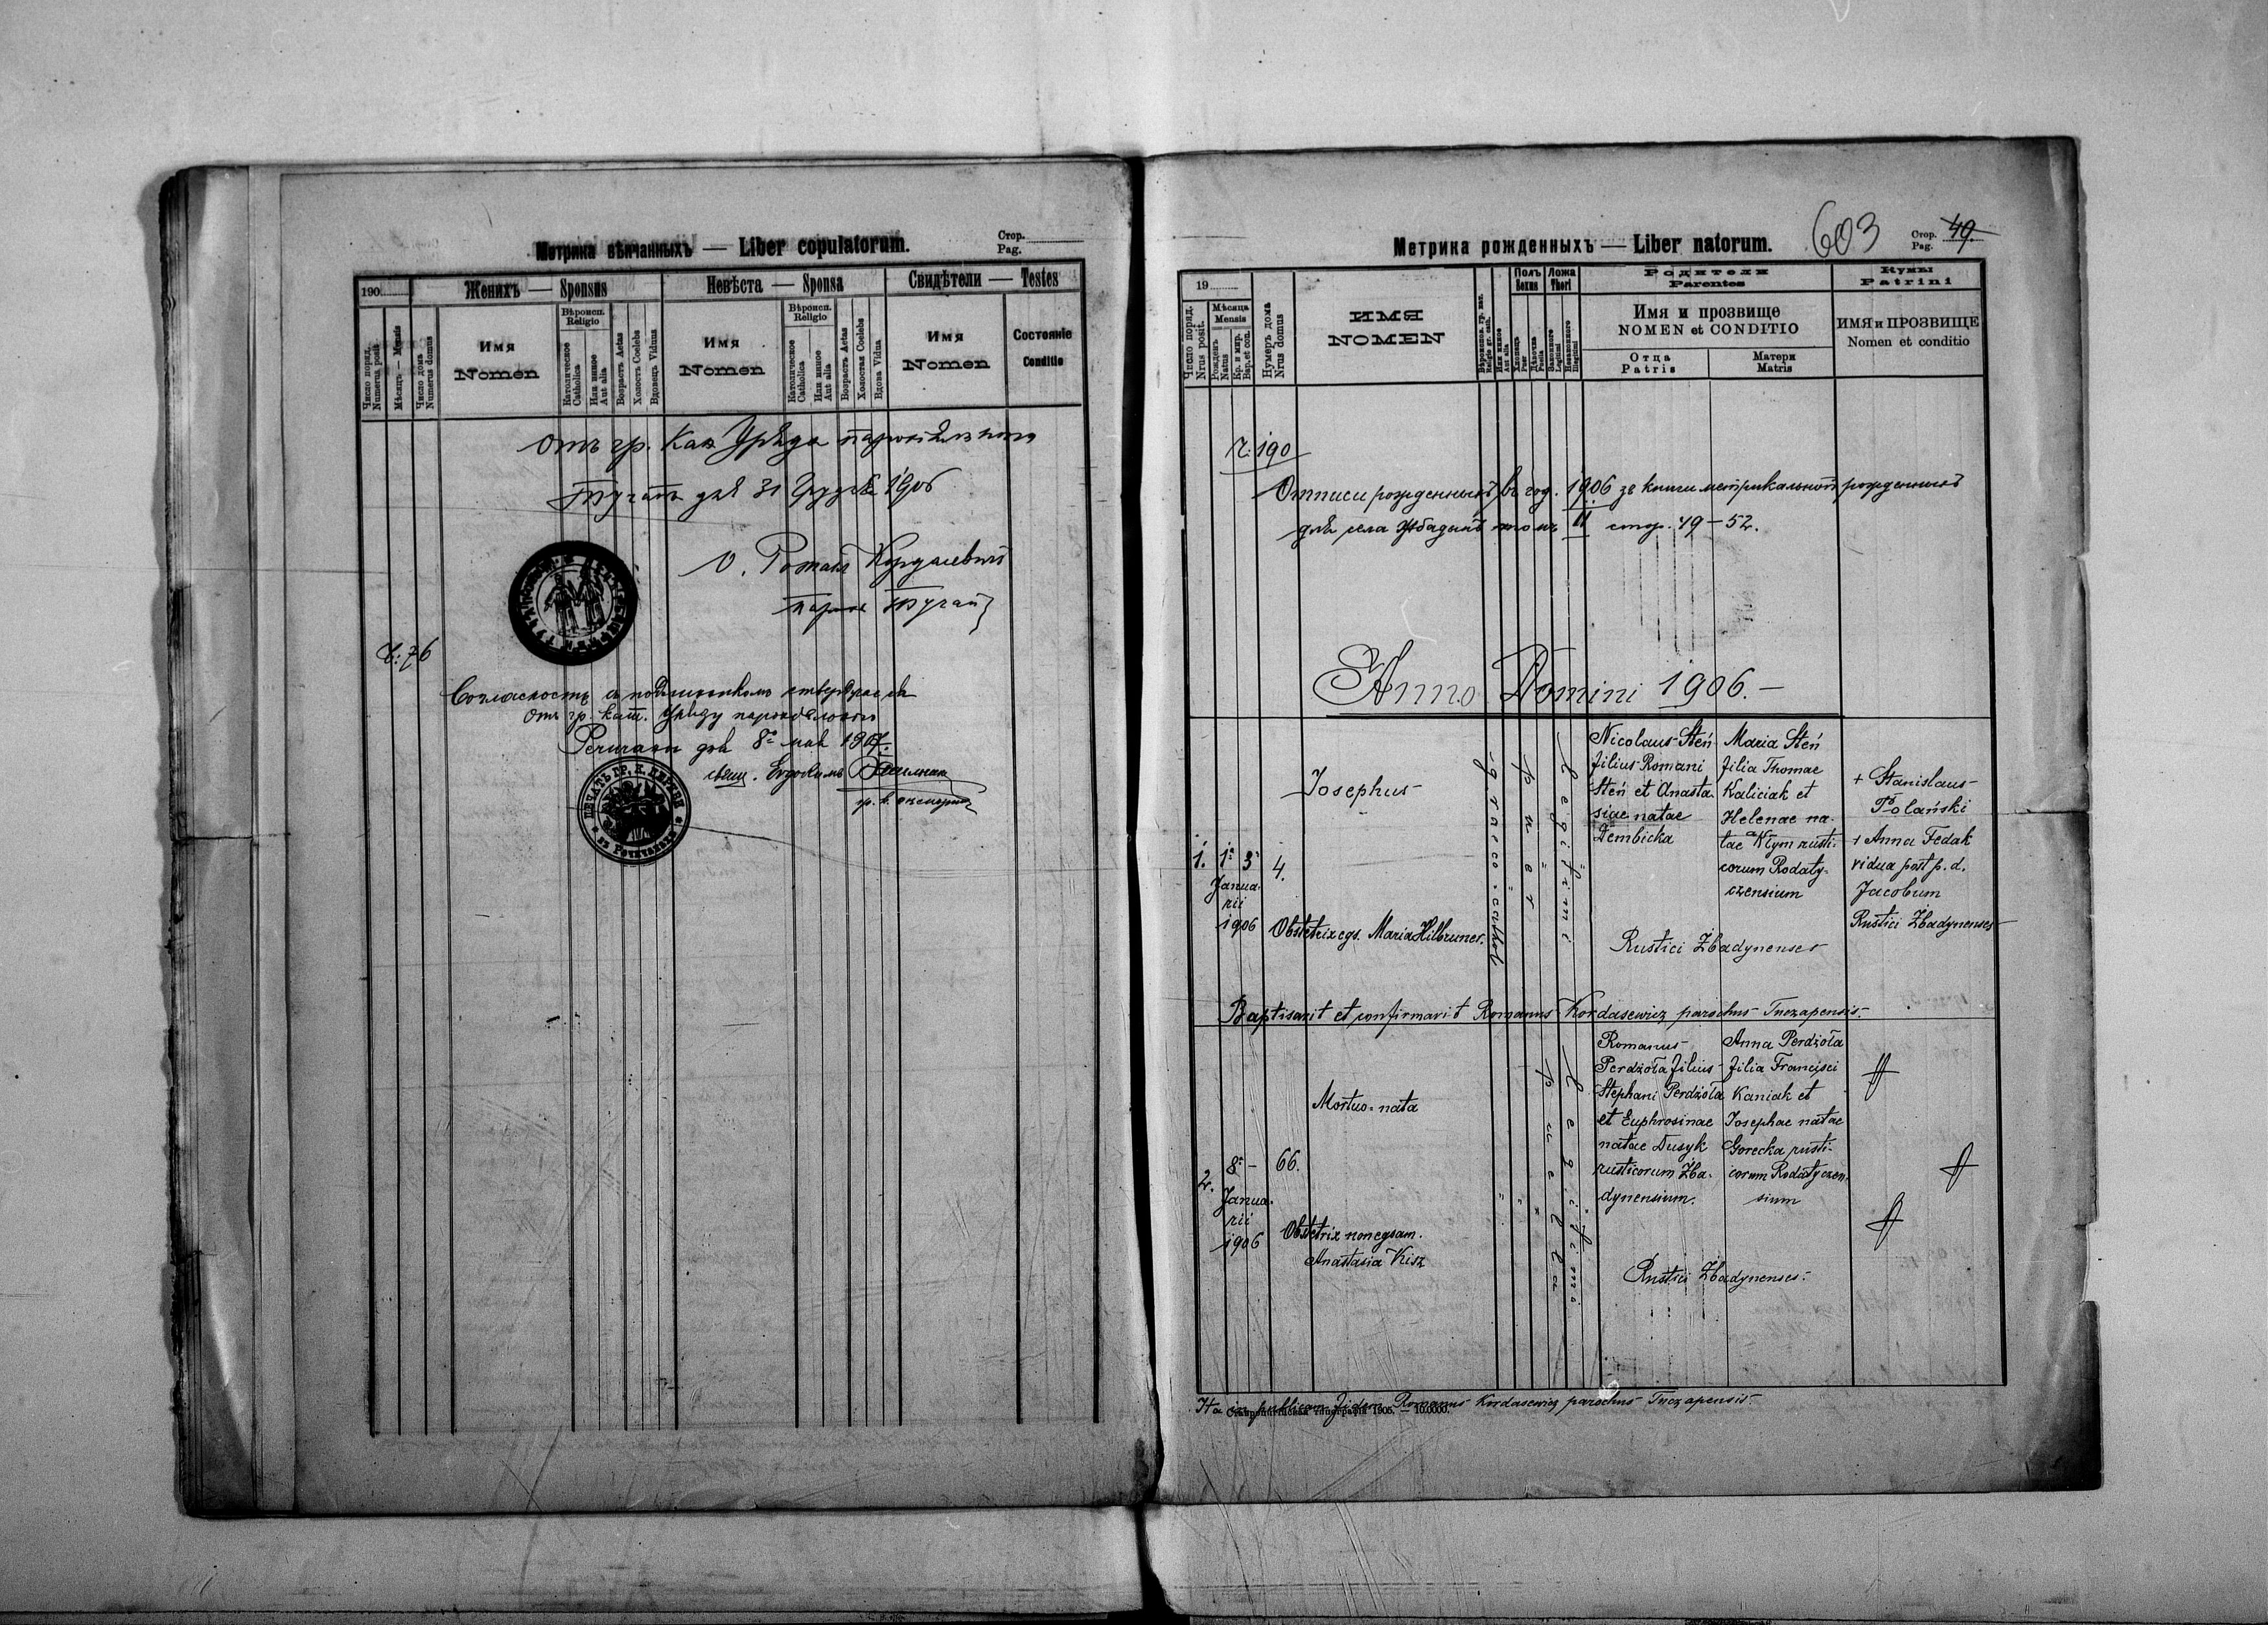 Метрика вѣнчанныхъ — Liber copulatorum.
Стор.
Pag.
190
Женихъ — Sponsus
Невѣста — Sponsa
Свидѣтели — Testes
Число поряд.
Numerus posit.
Мѣсяцъ — Mensis
Число дома
Numerus domus
Имя
Nomen
Вѣроисп.
Religio
Католическое
Catholica
Или иное
Aut alia
Возрастъ Aetas
Холостъ Coelebs
Вдовецъ Viduus
Имя
Nomen
Вѣроисп.
Religio
Католическое
Catholica
Или иное
Aut alia
Возрастъ Aetas
Холостая Coelebs
Вдова Vidua
Имя
Nomen
Состояніе
Conditio
Отъ гр. Кат. Уряда парохіяльного
Тучапы дня 31 Грудня 1906
О. Романъ Кордасевичъ
парох Тучап
Ч: 76
отъ гр. кат. Уряду парохіяльного
Речичаны дня 8го мая 1907.
свящ. Евдокимъ
ПЕЧАТЬ ГР. К. ЦЕРКВИ
въ Речичанахъ
Метрика рожденныхъ — Liber natorum.
603
Стор.
Pag.
49.
19
Число поряд.
Nrus posit.
Мѣсяцъ
Mensis
Рожденъ
Natus
Кр. и мир.
Bap. et con.
Нумеръ дома
Nrus domus
ИМЯ
NOMEN
Или иное
Aut alia
Полъ
Sexus
Хлопецъ
Puer
Дѣвочка
Puella
Ложа
Thori
Законного
Legitimi
Незаконного
Illegitimi
Родители
Parentes
Имя и прозвище
NOMEN et CONDITIO
Отца
Patris
Матери
Matris
Кумы
Patrini
ИМЯ и ПРОЗВИЩЕ
Nomen et conditio
Ч: 190
Отписи рожденныхъ въ год. 1906 зъ книги метрикальной рожденныхъ
для села Жбадынъ томъ II стор. 49 – 52.
Anno Domini 1906. –
1.
1. 3
Janua-
rii
1906
4.
Josephus
Obstetrix egs. Maria Hilbruner.
graeco-cath.
puer
Legitimi
Nicolaus Steń
filius Romani
Steń et Anasta-
siae natae
Dembicka
Maria Steń
filia Thomae
Kaliciak et
Helenae na-
tae Klym rusti-
corum Rodaty-
czensium
Rustici Żbadynenses
+ Stanislaus
Polański
+ Anna Fedak
vidua post p. d.
Jacobum
Rustici Żbadynenses
Baptisavit et confirmavit Romanus Kordasewicz parochus Tuczapensis.
2.
8. –
Janua-
rii
1906
66.
Mortuo-nata
Obstetrix non egsam.
Anastasia Kisz
puella
Legitimi
Romanus
Perdżoła filius
Stephani Perdżoła
et Euphrosinae
natae Dusyk
rusticorum Żba-
dynensium.
Anna Perdżoła
filia Francisci
Kaniak et
Josephae natae
Gorecka rusti-
corum Rodatyczen-
sium
Rustici Żbadynenses.
Ita in publicam fidem Romanus Kordasewicz parochus Tuczapensis.
Ставропигійская типографія 1905. — 10.0000.